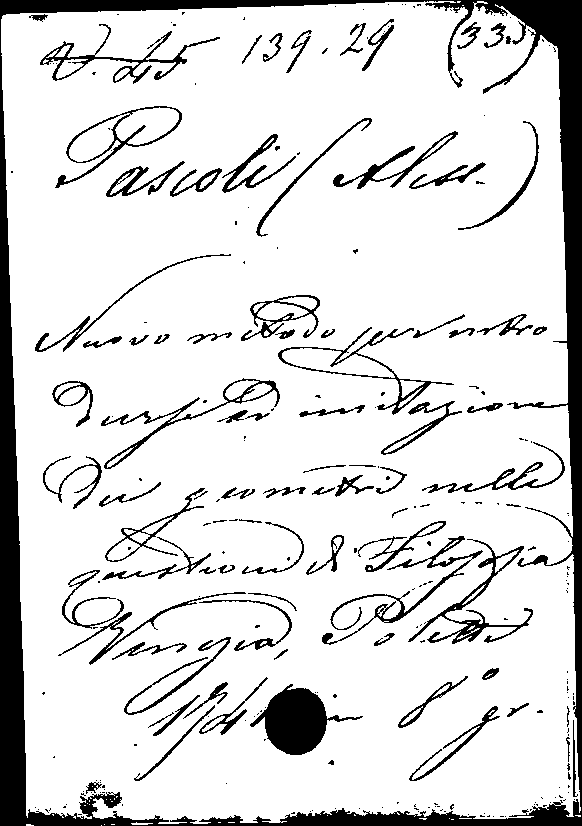 V. 45 139.29 (33.)
Pascoli (Aless.)
Nuovo metodo per intro-
dursi ad imitazione
dei geometri nelle
questioni di Filosofia
Venezia, Poletti
in 8° gr.